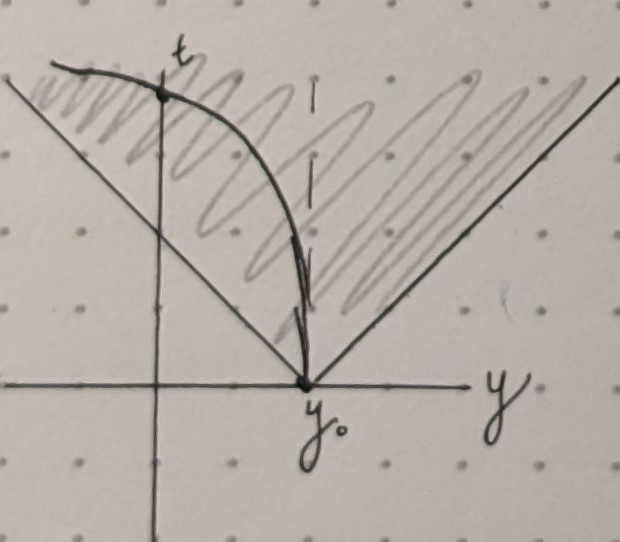 t
y
y₀